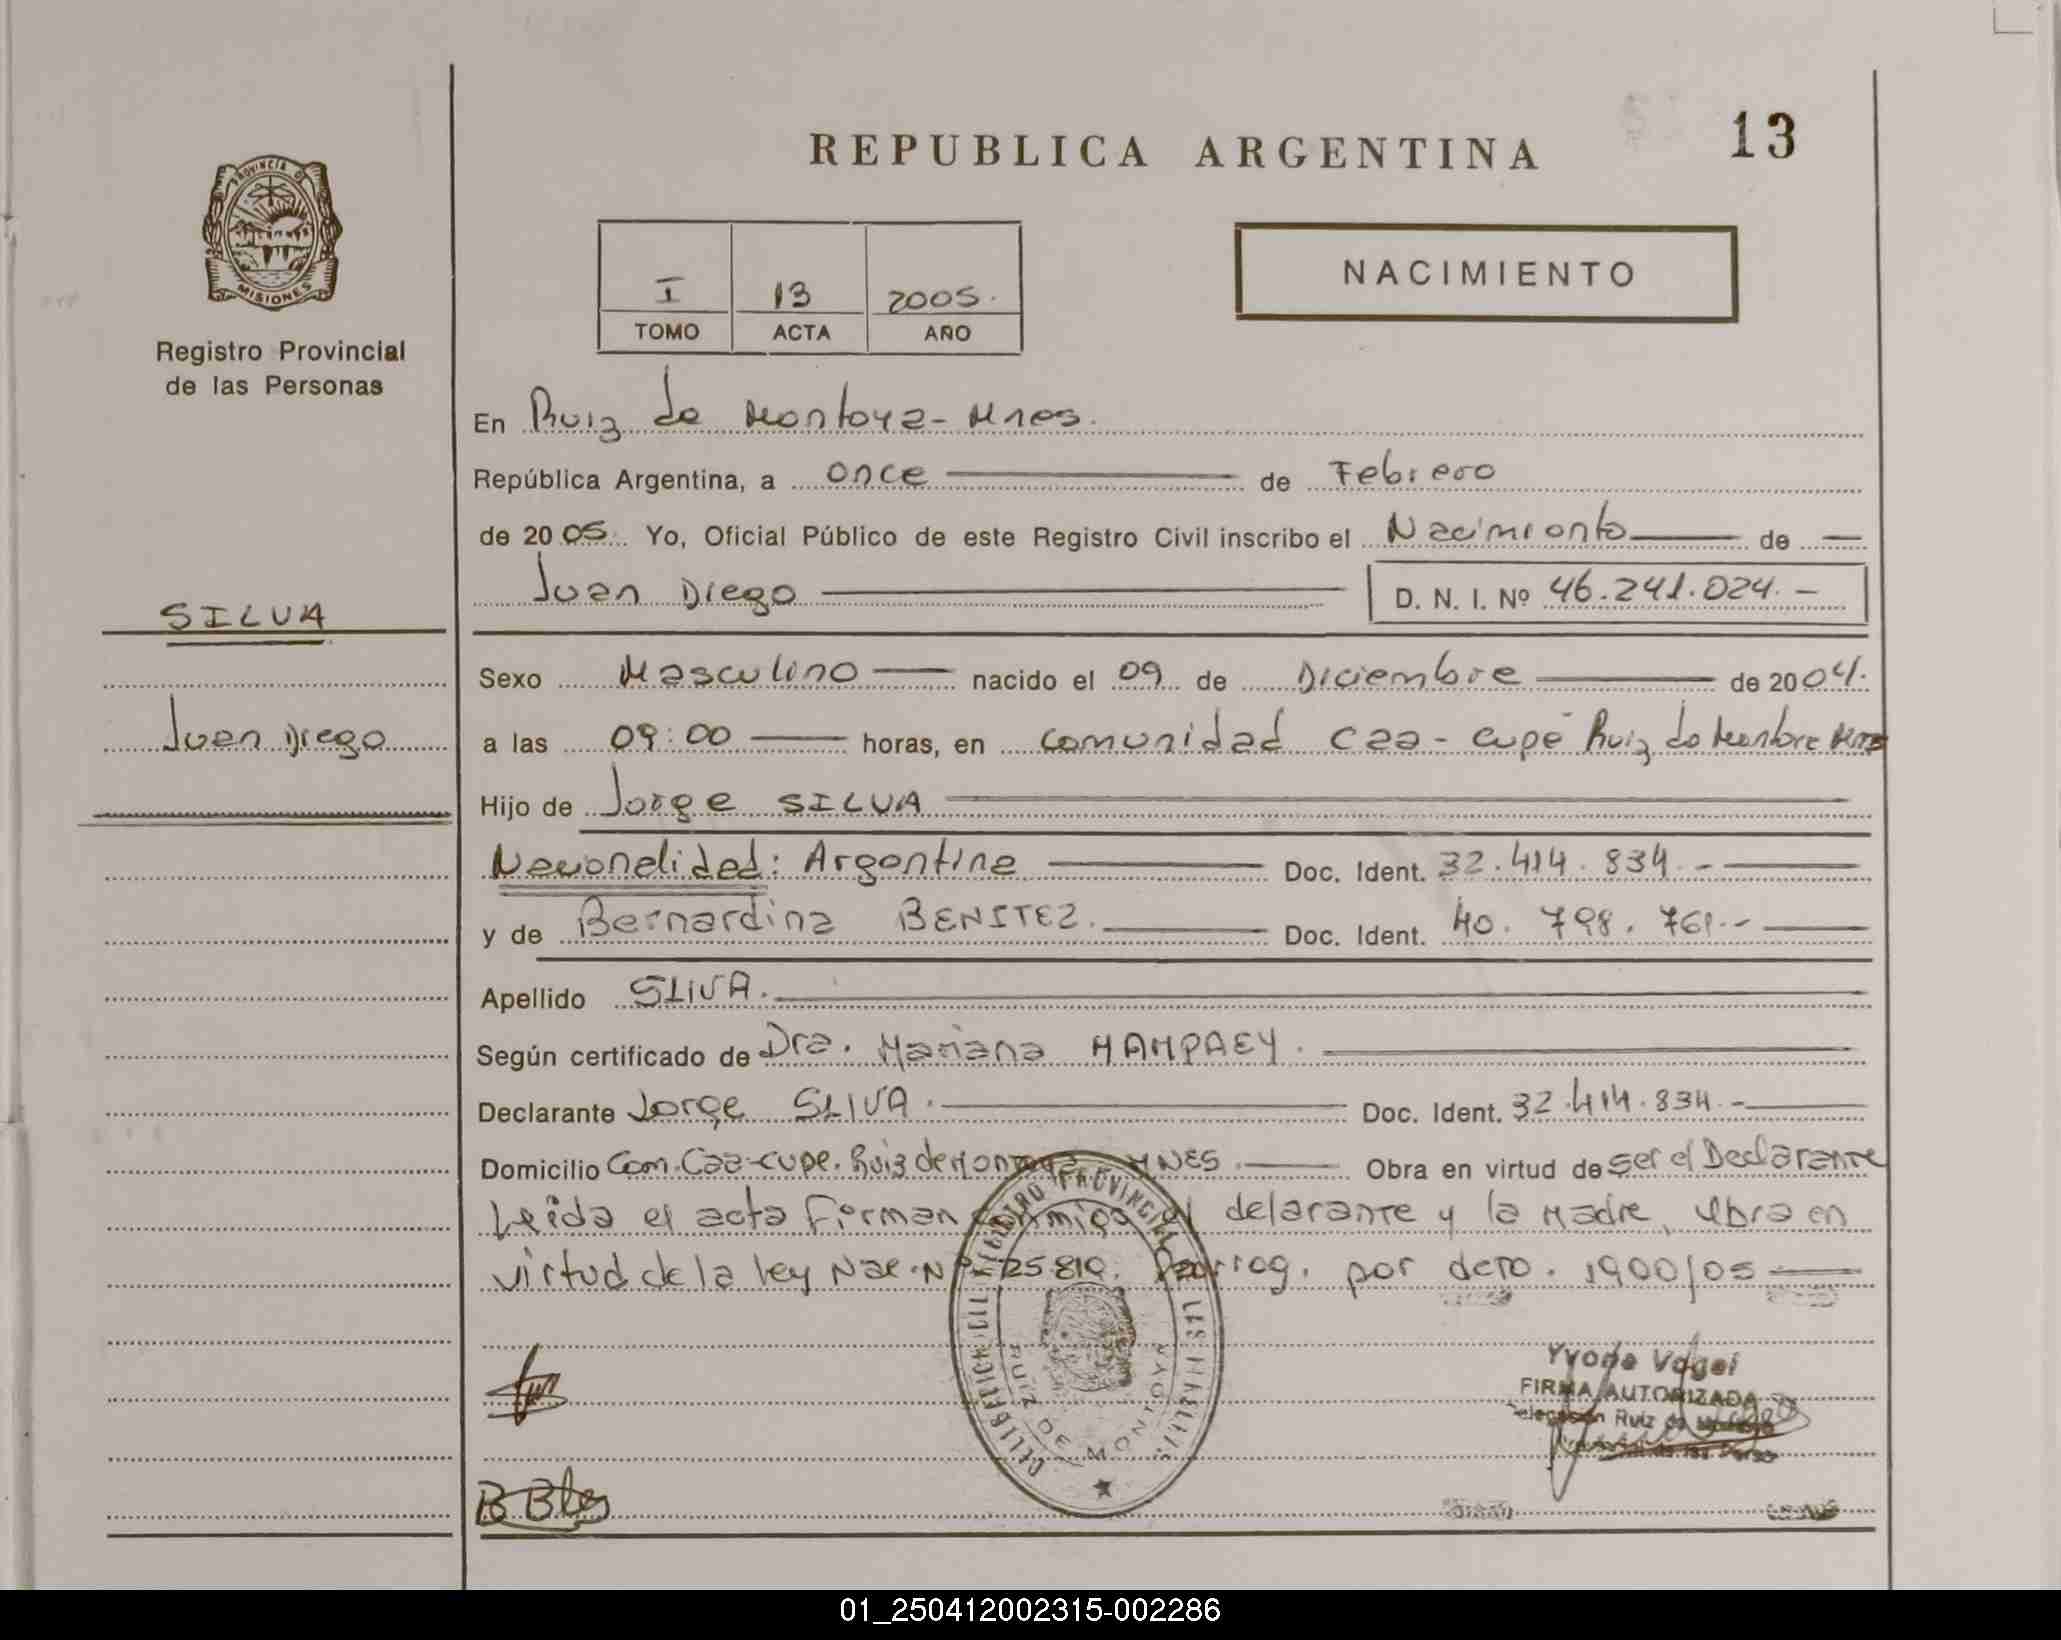 REPUBLICA ARGENTINA
13
PROVINCIA DE
MISIONES
Registro Provincial
de las Personas
I 13 2005.
TOMO ACTA AÑO
NACIMIENTO
En Ruiz de Montoya - Mnes.
República Argentina, a once de Febrero
de 20 05 Yo, Oficial Público de este Registro Civil inscribo el Nacimiento de
Juan Diego D. N. I. Nº 46.241.024.-
SILVA
Juan Diego
Sexo Masculino nacido el 09 de Diciembre de 20 04.
a las 09:00 horas, en comunidad Caa-cupé Ruiz de Montoya Mnes
Hijo de Jorge SILVA
Nacionalidad: Argentina Doc. Ident. 32.414.834.-
y de Bernardina BENITEZ. Doc. Ident. 40.798.761.-
Apellido SILVA.
Según certificado de Dra. Mariana HAMPAEY.
Declarante Jorge SILVA. Doc. Ident. 32.414.834.-
Domicilio Com. Caa-cupe. Ruiz de Montoya MNES. Obra en virtud de ser el Declarante
Leida el acta firman conmigo el delarante y la Madre, obra en
virtud de la ley Nac. Nº 25.819. Prorrog. por dcto. 1900/05
REGISTRO PROVINCIAL DE LAS PERSONAS
RUIZ DE MONTOYA
Yvone Vogel
FIRMA AUTORIZADA
Delegación Ruiz de Montoya
B Btes
01_250412002315-002286